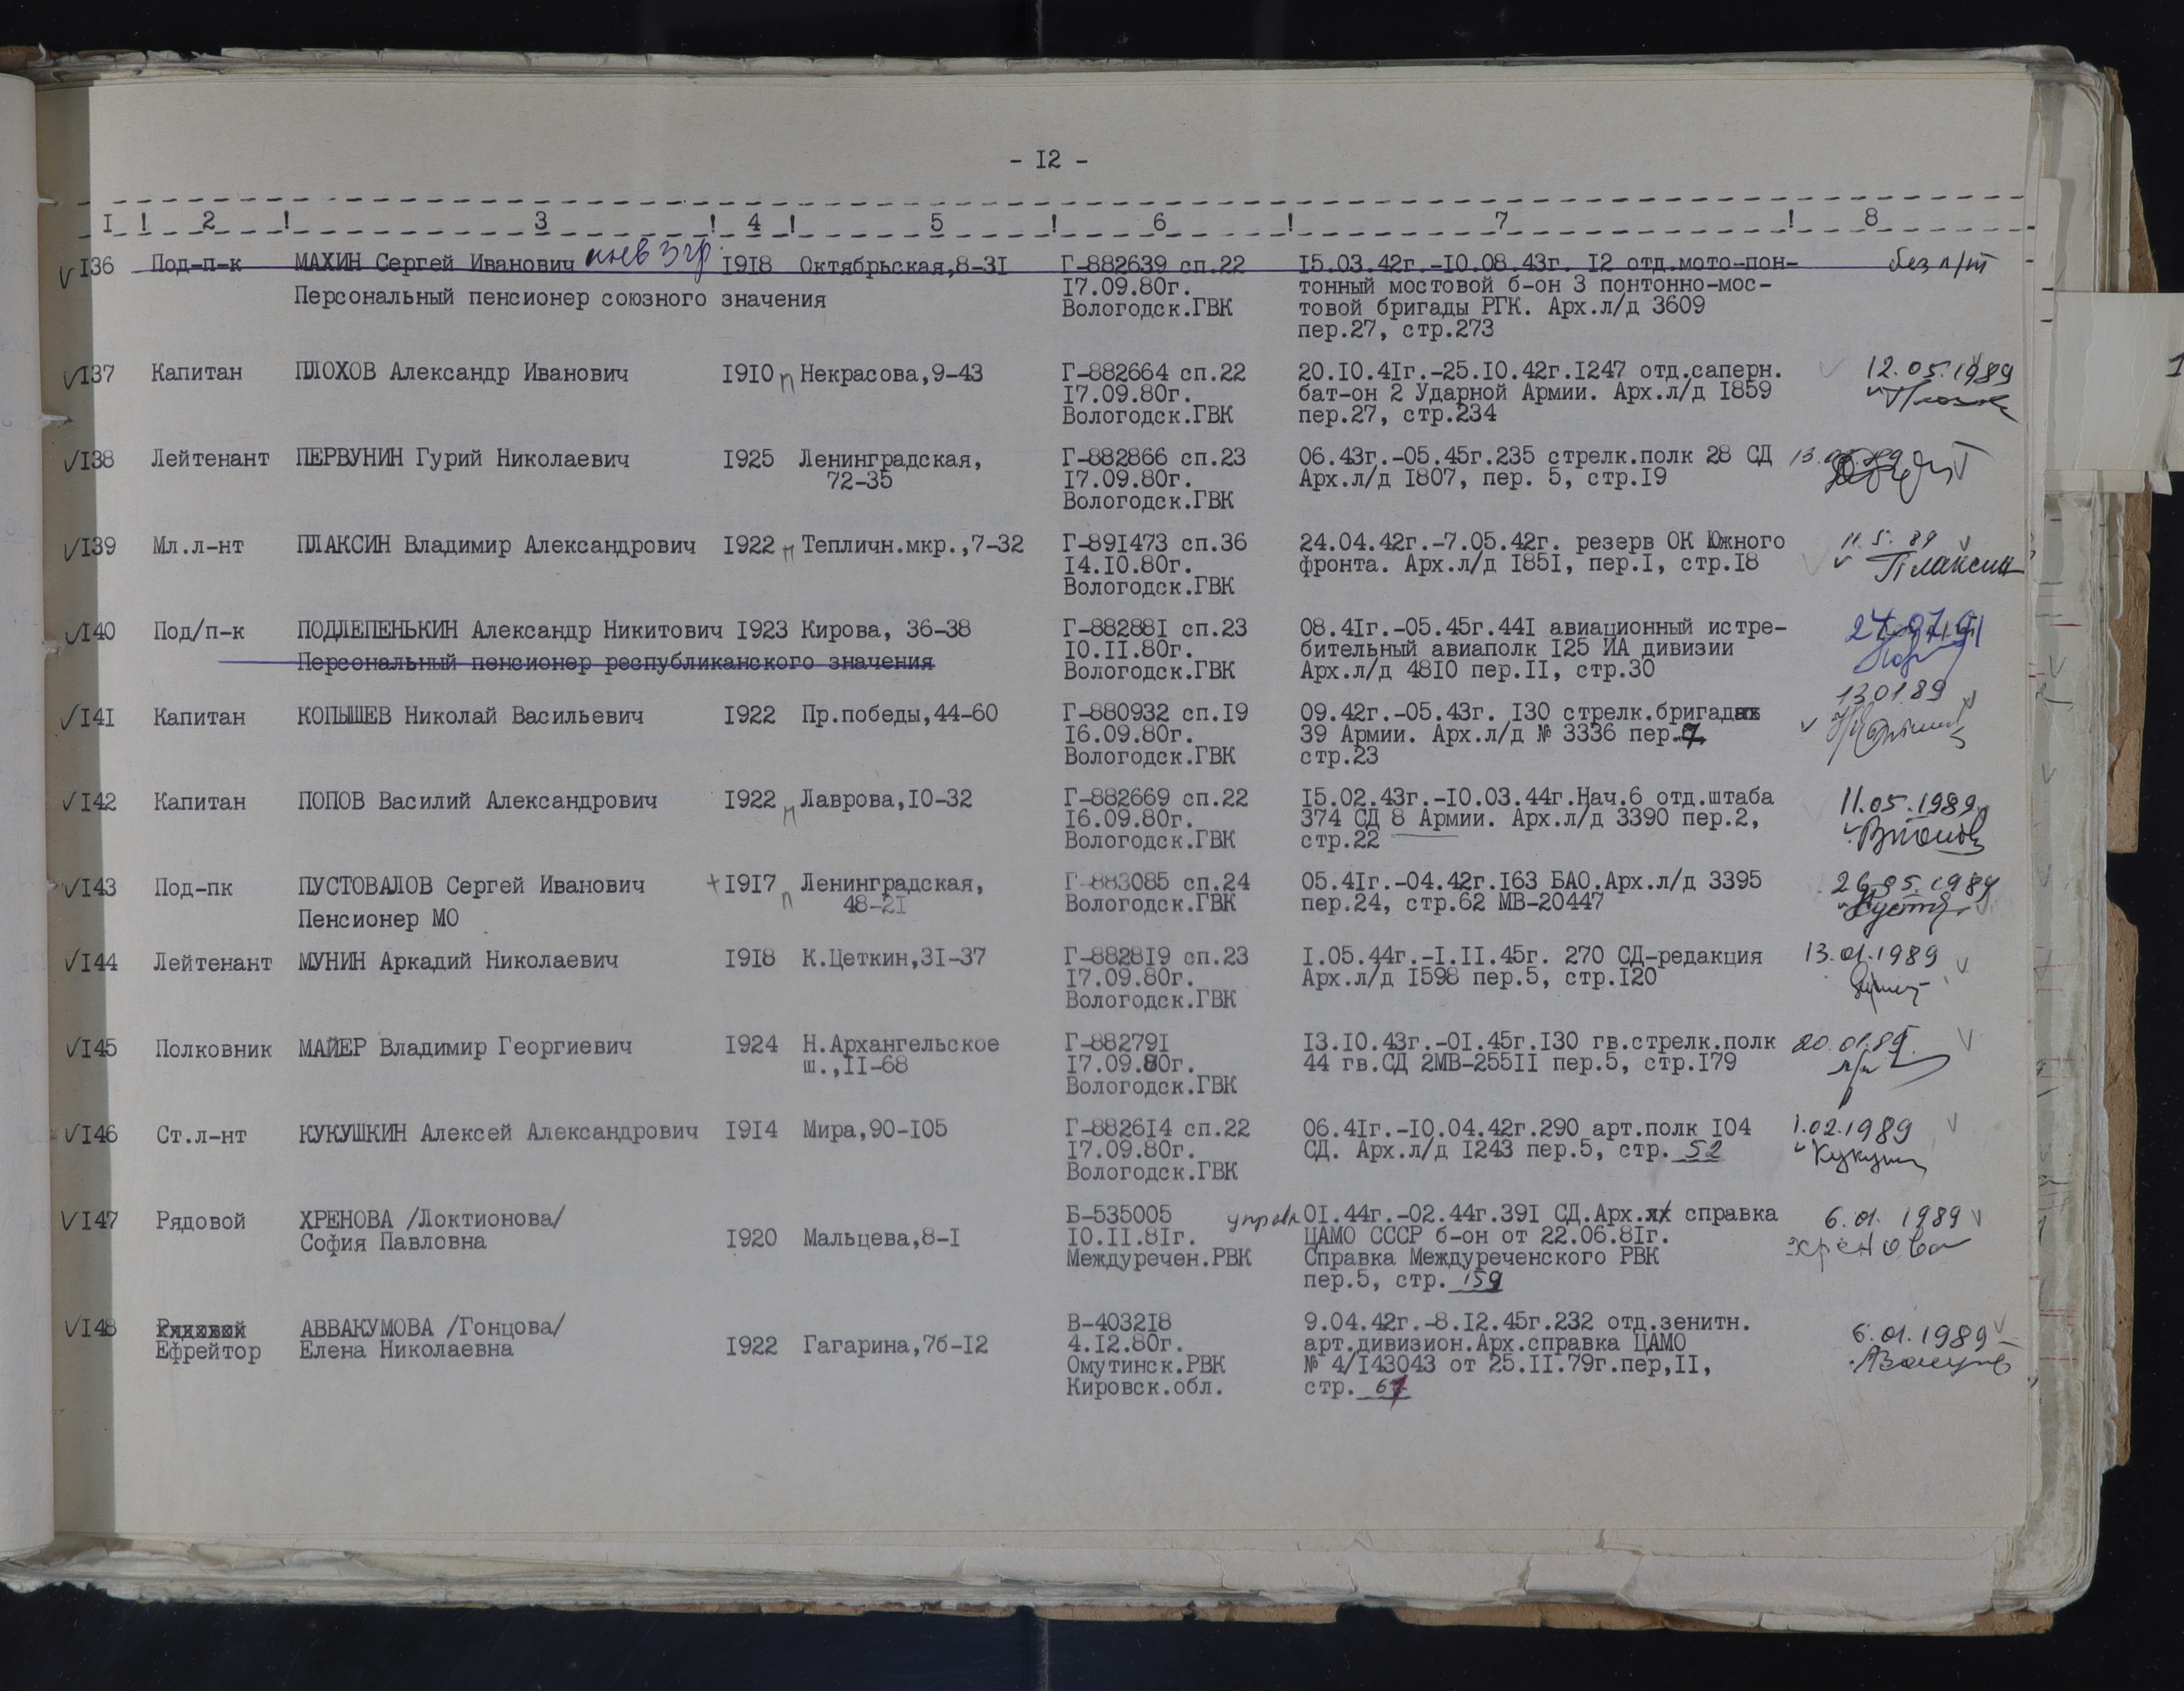 - I2 -
I ! 2 ! 3 ! 4 ! 5 ! 6 ! 7 ! 8
I36 Под-п-к МАХИН Сергей Иванович инв 3 гр. I9I8 Октябрьская,8-3I Г-882639 сп.22 I5.03.42г.-I0.08.43г. I2 отд.мото-пон- без п/т
Персональный пенсионер союзного значения I7.09.80г. тонный мостовой б-он 3 понтонно-мос-
Вологодск.ГВК товой бригады РГК. Арх.л/д 3609
пер.27, стр.273
I37 Капитан ПЛОХОВ Александр Иванович I9I0 п Некрасова,9-43 Г-882664 сп.22 20.I0.4Iг.-25.I0.42г.I247 отд.саперн. 12.05.1989
I7.09.80г. бат-он 2 Ударной Армии. Арх.л/д I859
Вологодск.ГВК пер.27, стр.234
I38 Лейтенант ПЕРВУНИН Гурий Николаевич I925 Ленинградская, Г-882866 сп.23 06.43г.-05.45г.235 стрелк.полк 28 СД
72-35 I7.09.80г. Арх.л/д I807, пер. 5, стр.I9
Вологодск.ГВК
I39 Мл.л-нт ПЛАКСИН Владимир Александрович I922 п Тепличн.мкр.,7-32 Г-89I473 сп.36 24.04.42г.-7.05.42г. резерв ОК Южного 11.5.89
I4.I0.80г. фронта. Арх.л/д I85I, пер.I, стр.I8 Плаксин
Вологодск.ГВК
I40 Под/п-к ПОДЛЕПЕНЬКИН Александр Никитович I923 Кирова, 36-38 Г-88288I сп.23 08.4Iг.-05.45г.44I авиационный истре-
Персональный пенсионер республиканского значения I0.II.80г. бительный авиаполк I25 ИА дивизии
Вологодск.ГВК Арх.л/д 48I0 пер.II, стр.30
I4I Капитан КОПЫШЕВ Николай Васильевич I922 Пр.победы,44-60 Г-880932 сп.I9 09.42г.-05.43г. I30 стрелк.бригада 130189
I6.09.80г. 39 Армии. Арх.л/д № 3336 пер.7,
Вологодск.ГВК стр.23
I42 Капитан ПОПОВ Василий Александрович I922 п Лаврова,I0-32 Г-882669 сп.22 I5.02.43г.-I0.03.44г.Нач.6 отд.штаба 11.05.1989
I6.09.80г. 374 СД 8 Армии. Арх.л/д 3390 пер.2,
Вологодск.ГВК стр.22
I43 Под-пк ПУСТОВАЛОВ Сергей Иванович +I9I7 п Ленинградская, Г-883085 сп.24 05.4Iг.-04.42г.I63 БАО.Арх.л/д 3395 26.05.1989
48-2I Вологодск.ГВК пер.24, стр.62 МВ-20447
Пенсионер МО
I44 Лейтенант МУНИН Аркадий Николаевич I9I8 К.Цеткин,3I-37 Г-8828I9 сп.23 I.05.44г.-I.II.45г. 270 СД-редакция 13.01.1989
I7.09.80г. Арх.л/д I598 пер.5, стр.I20
Вологодск.ГВК
I45 Полковник МАЙЕР Владимир Георгиевич I924 Н.Архангельское Г-88279I I3.I0.43г.-0I.45г.I30 гв.стрелк.полк 20.01.89.
ш.,II-68 I7.09.80г. 44 гв.СД 2МВ-255II пер.5, стр.I79
Вологодск.ГВК
I46 Ст.л-нт КУКУШКИН Алексей Александрович I9I4 Мира,90-I05 Г-8826I4 сп.22 06.4Iг.-I0.04.42г.290 арт.полк I04 1.02.1989
I7.09.80г. СД. Арх.л/д I243 пер.5, стр. 52
Вологодск.ГВК
I47 Рядовой ХРЕНОВА /Локтионова/ Б-535005 управл 0I.44г.-02.44г.39I СД.Арх. справка 6.01.1989
София Павловна I920 Мальцева,8-I I0.II.8Iг. ЦАМО СССР б-он от 22.06.8Iг. хренова
Междуречен.РВК Справка Междуреченского РВК
пер.5, стр. 159
I48 Рядовой АВВАКУМОВА /Гонцова/ В-4032I8 9.04.42г.-8.I2.45г.232 отд.зенитн. 6.01.1989
Ефрейтор Елена Николаевна I922 Гагарина,7б-I2 4.I2.80г. арт.дивизион.Арх.справка ЦАМО
Омутинск.РВК № 4/I43043 от 25.II.79г.пер,II,
Кировск.обл. стр. 67